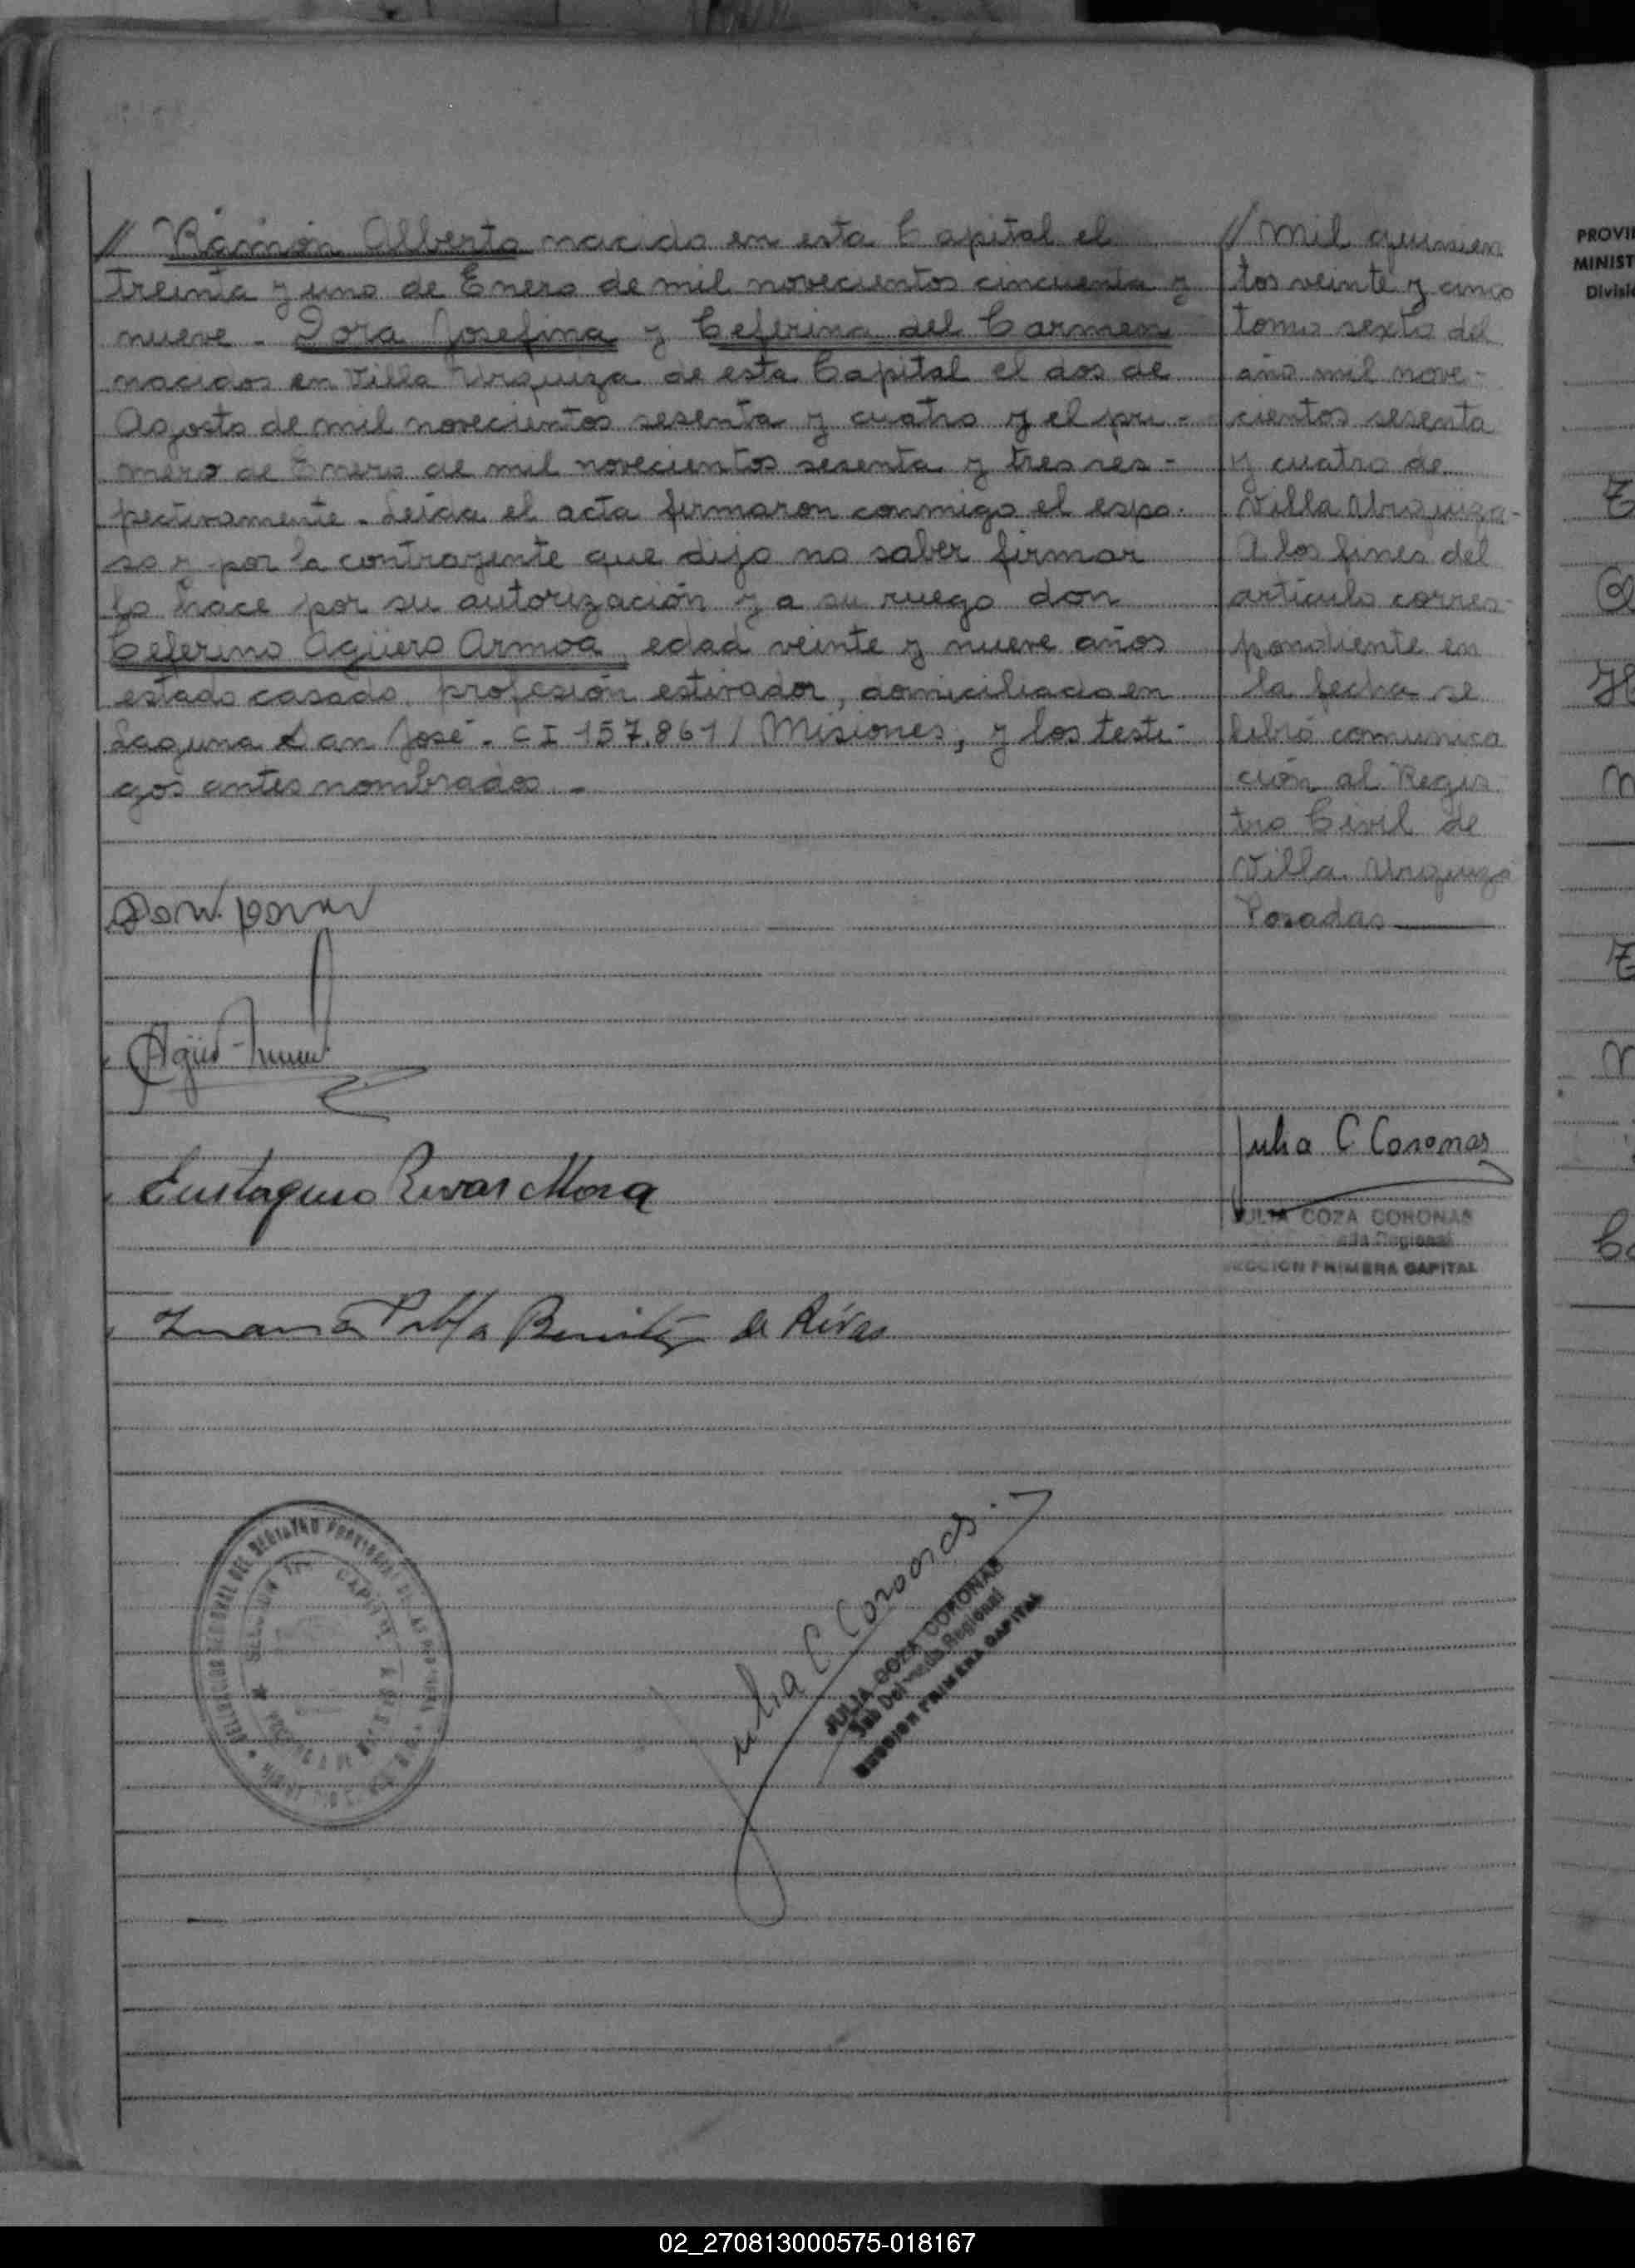 // Ramón Alberto nacido en esta Capital el
treinta y uno de Enero de mil novecientos cincuenta y
nueve - Dora Josefina y Ceferina del Carmen
nacidas en Villa Urquiza de esta Capital el dos de
Agosto de mil novecientos sesenta y cuatro y el pri-
mero de Enero de mil novecientos sesenta y tres res-
pectivamente. Leída el acta firmaron conmigo el espo-
so y por la contrayente que dijo no saber firmar
lo hace por su autorización y a su ruego don
Ceferino Agüero Armoa edad veinte y nueve años
estado casado, profesión estivador, domiciliado en
Laguna San José - CI 157.861/Misiones, y los testi-
gos antes nombrados. -
Eustaquio Rivas Mora
Juana Pabla Benitez de Rivas
Julia C Coronas
JULIA COZA CORONAS
Sub Delegada Regional
SECCION PRIMERA CAPITAL
// mil quinien
tos veinte y cinco
tomo sexto del
año mil nove-
cientos sesenta
y cuatro de
Villa Urquiza-
A los fines del
artículo corres-
pondiente en
la fecha se
libró comunica
ción al Regis
tro Civil de
Villa Urquiza
Posadas
Julia C Coronas
JULIA COZA CORONAS
Regional
SECCION PRIMERA CAPITAL
PROVI
MINIST
Divisi
02_270813000575-018167